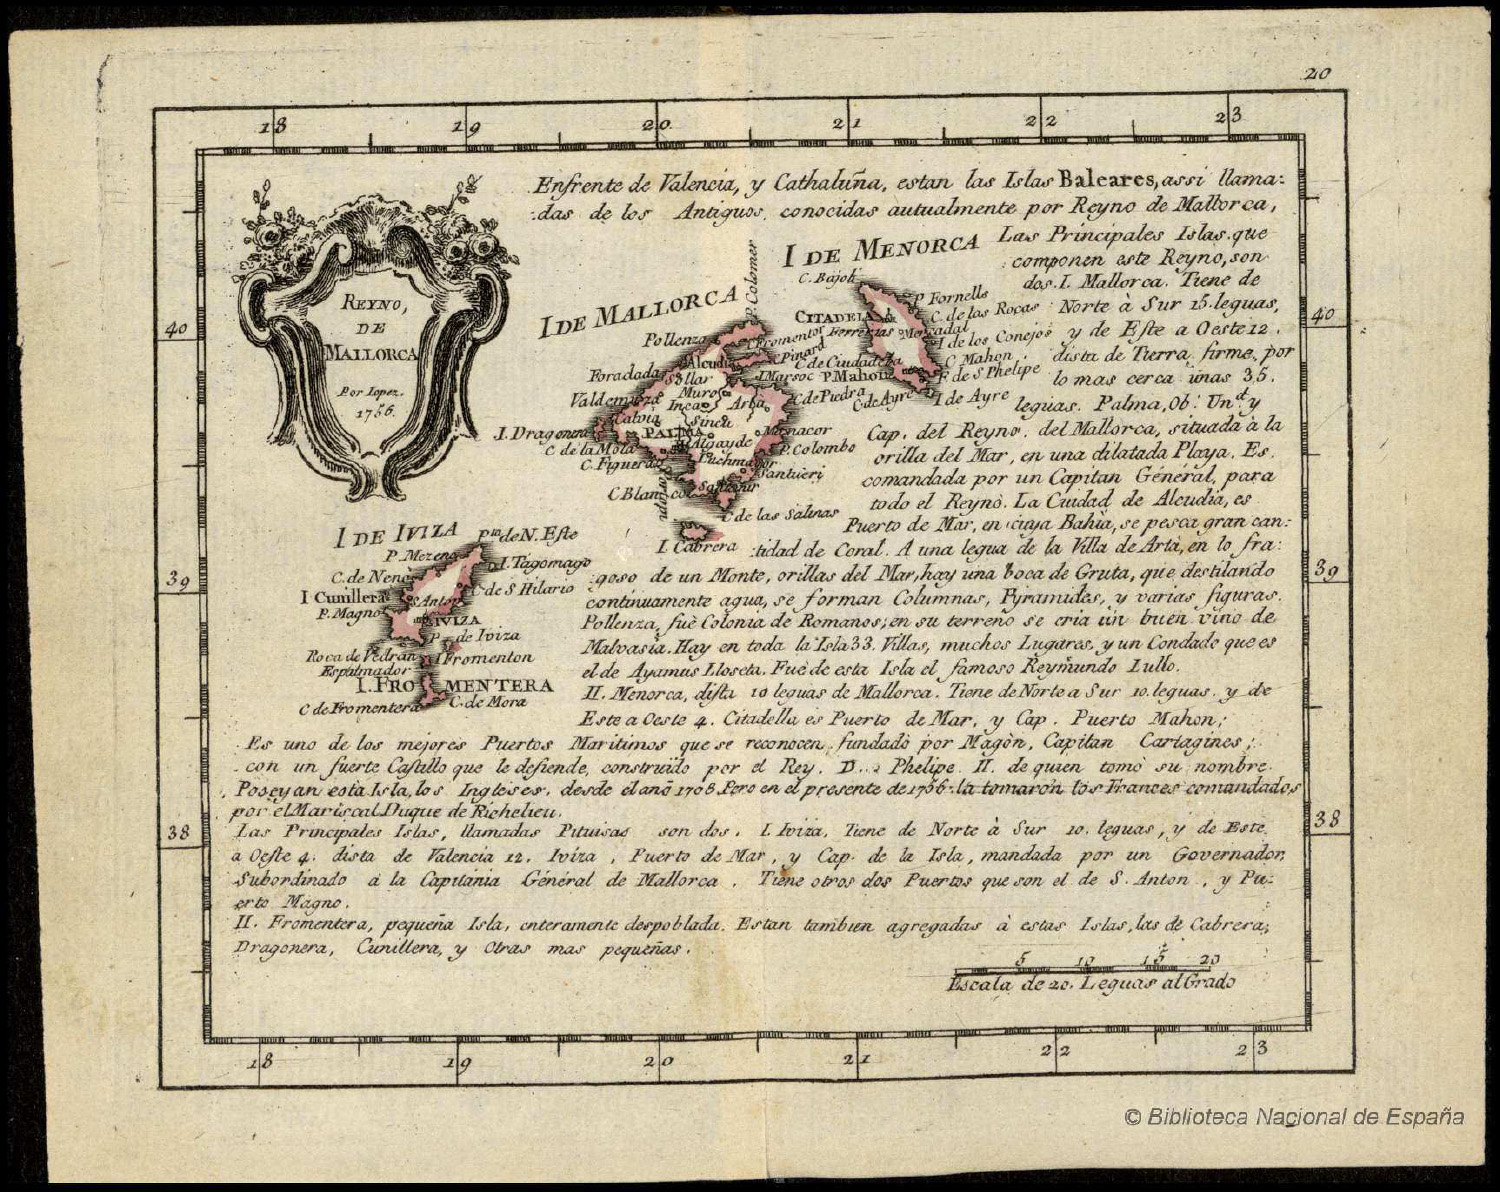 20
18 19 20 21 22 23
Enfrente de Valencia, y Cathaluña, estan las Islas Baleares, assi llama:
:das de los Antiguos, conocidas autualmente por Reyno de Mallorca,
Las Principales Islas que
componen este Reyno, son
dos. I. Mallorca. Tiene de
Norte à Sur 15. leguas,
y de Este a Oeste 12.
dista de Tierra firme, por
lo mas cerca unas 35.
leguas. Palma, Ob. Un.d y
Cap. del Reyno. del Mallorca, situada à la
orilla del Mar, en una dilatada Playa. Es
comandada por un Capitan Général, para
todo el Reynò. La Cuidad de Alcudia, es
Puerto de Mar, en cuya Bahia, se pesca gran can:
:tidad de Coral. A una legua de la Villa de Artà, en lo fra:
:goso de un Monte, orillas del Mar, hay una boca de Gruta, que destilando
continuamente agua, se forman Columnas, Pyramides, y varias figuras.
Pollenza, fuè Colonia de Romanos; en su terreno se cria un buen vino de
Malvasia. Hay en toda la Isla 33. Villas, muchos Lugares, y un Condado que es
el de Ayamus Lloseta. Fuè de esta Isla el famoso Reymundo Lullo.
II. Menorca, dista 10 leguas de Mallorca. Tiene de Norte a Sur 10. leguas, y de
Este a Oeste 4. Citadella es Puerto de Mar, y Cap. Puerto Mahon;
Es uno de los mejores Puertos Maritimos que se reconocen, fundado por Magòn, Capitan Cartagines;
con un fuerte Castillo que le defiende, construido por el Rey. D. Phelipe II. de quien tomò su nombre.
Poseyan esta Isla, los Ingleses, desde el año 1708. Pero en el presente de 1756. la tomaron los Frances comandados
por el Mariscal Duque de Richelieu.
Las Principales Islas, llamadas Pituisas son dos. I. Iviza, Tiene de Norte à Sur 10. leguas, y de Este
a Oeste 4. dista de Valencia 12. Iviza, Puerto de Mar, y Cap. de la Isla, mandada por un Governador
Subordinado à la Capitania Général de Mallorca. Tiene otros dos Puertos que son el de S. Anton, y Pu:
erto Magno.
II. Fromentera, pequeña Isla, enteramente despoblada. Estan tambien agregadas à estas Islas, las de Cabrera,
Dragonera, Cunillera, y otras mas pequeñas.
REYNO,
DE
MALLORCA
Por Lopez.
1756.
I DE MENORCA
C. Bajoli
P. Fornells
C. de las Rocas
CITADELA
Ferrerias
Mercadal
I de los Conejos
C. Mahon
F. de S. Phelipe
C. de Ciudadela
P. Mahon
C. de Ayre
I de Ayre
I DE MALLORCA
P. Colomer
Pollenza
C. Fromentor
C. Pinard
Alcudia
Foradada
Sollar
I. Marsoc
Valdemuza
Muro
C. de Piedra
Inca
Artà
Calvia
Sineu
I. Dragonera
PALMA
Manacor
C. de la Mola
Algayde
P. Colombo
C. Figuera
Luchmayor
Santueri
C. Blanco
C. de las Salinas
I. Cabrera
I DE IVIZA
P.ta de N. Este
P. Mezena
I. Tagomago
C. de Nenò
C. de S Hilario
I Cunillera
S. Anton
P. Magno
IVIZA
P. de Iviza
Roca de Vedràn
I Fromenton
Espalmador
I. FROMENTERA
C de Fromentera
C. de Mora
40 40
39 39
38 38
5 10 15 20
Escala de 20. Leguas al Grado
18 19 20 21 22 23
© Biblioteca Nacional de España